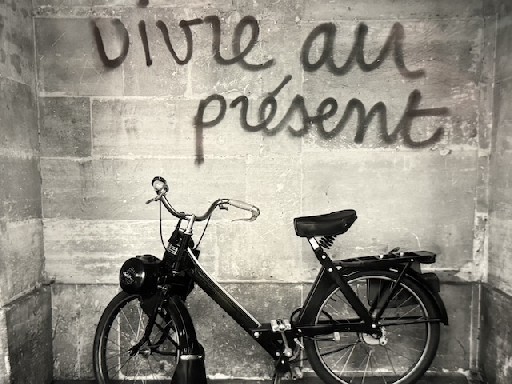 vivre au
présent